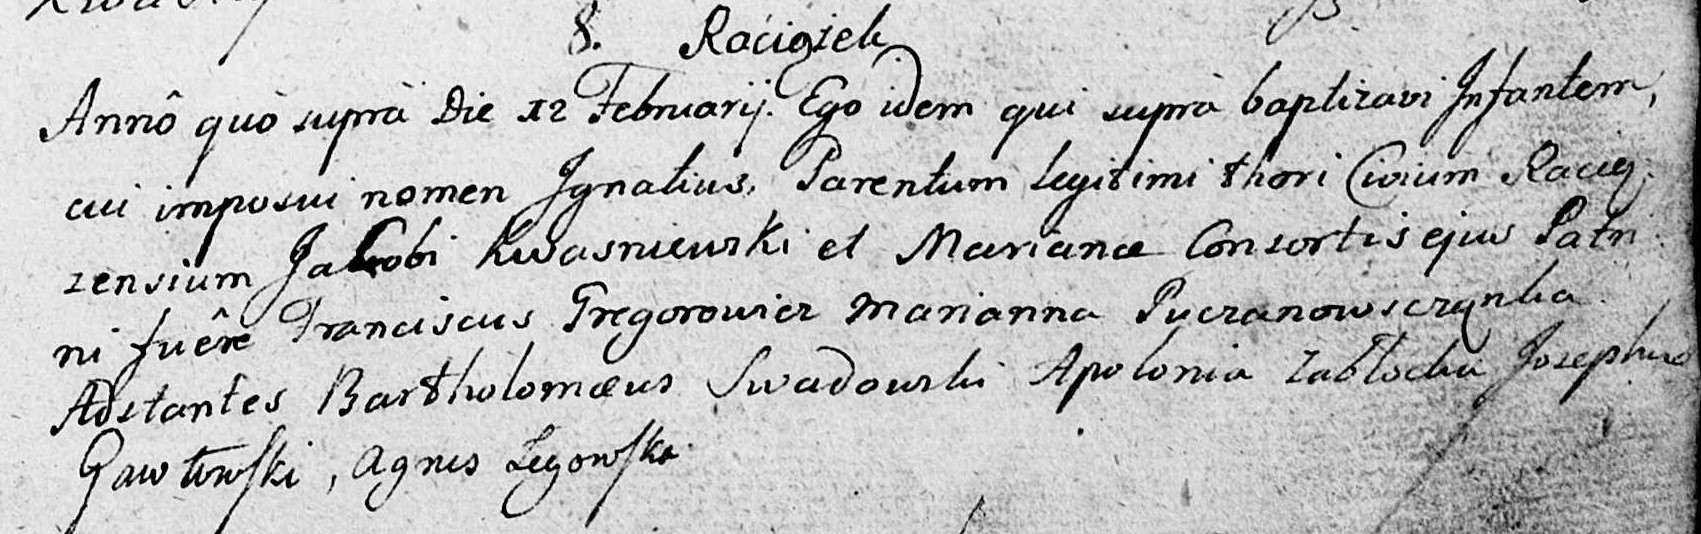 8. Raciążek
Annô quò suprà Die 12 Februarij. Ego idem qui suprà baptizavi Infantem,
cui imposui nomen Ignatius, Parentum legitimi thori Civium Raciąż
zensium Jakobi Kwasniewski et Marianæ Consortis ejus Patri
ni fuêre Franciscus Gregorowicz Marianna Pyczanowsczynka
Adstantes Bartholomæus Swadowski Apolonia Zabłocka Josephus
Gawłowski, Agnes Legowska